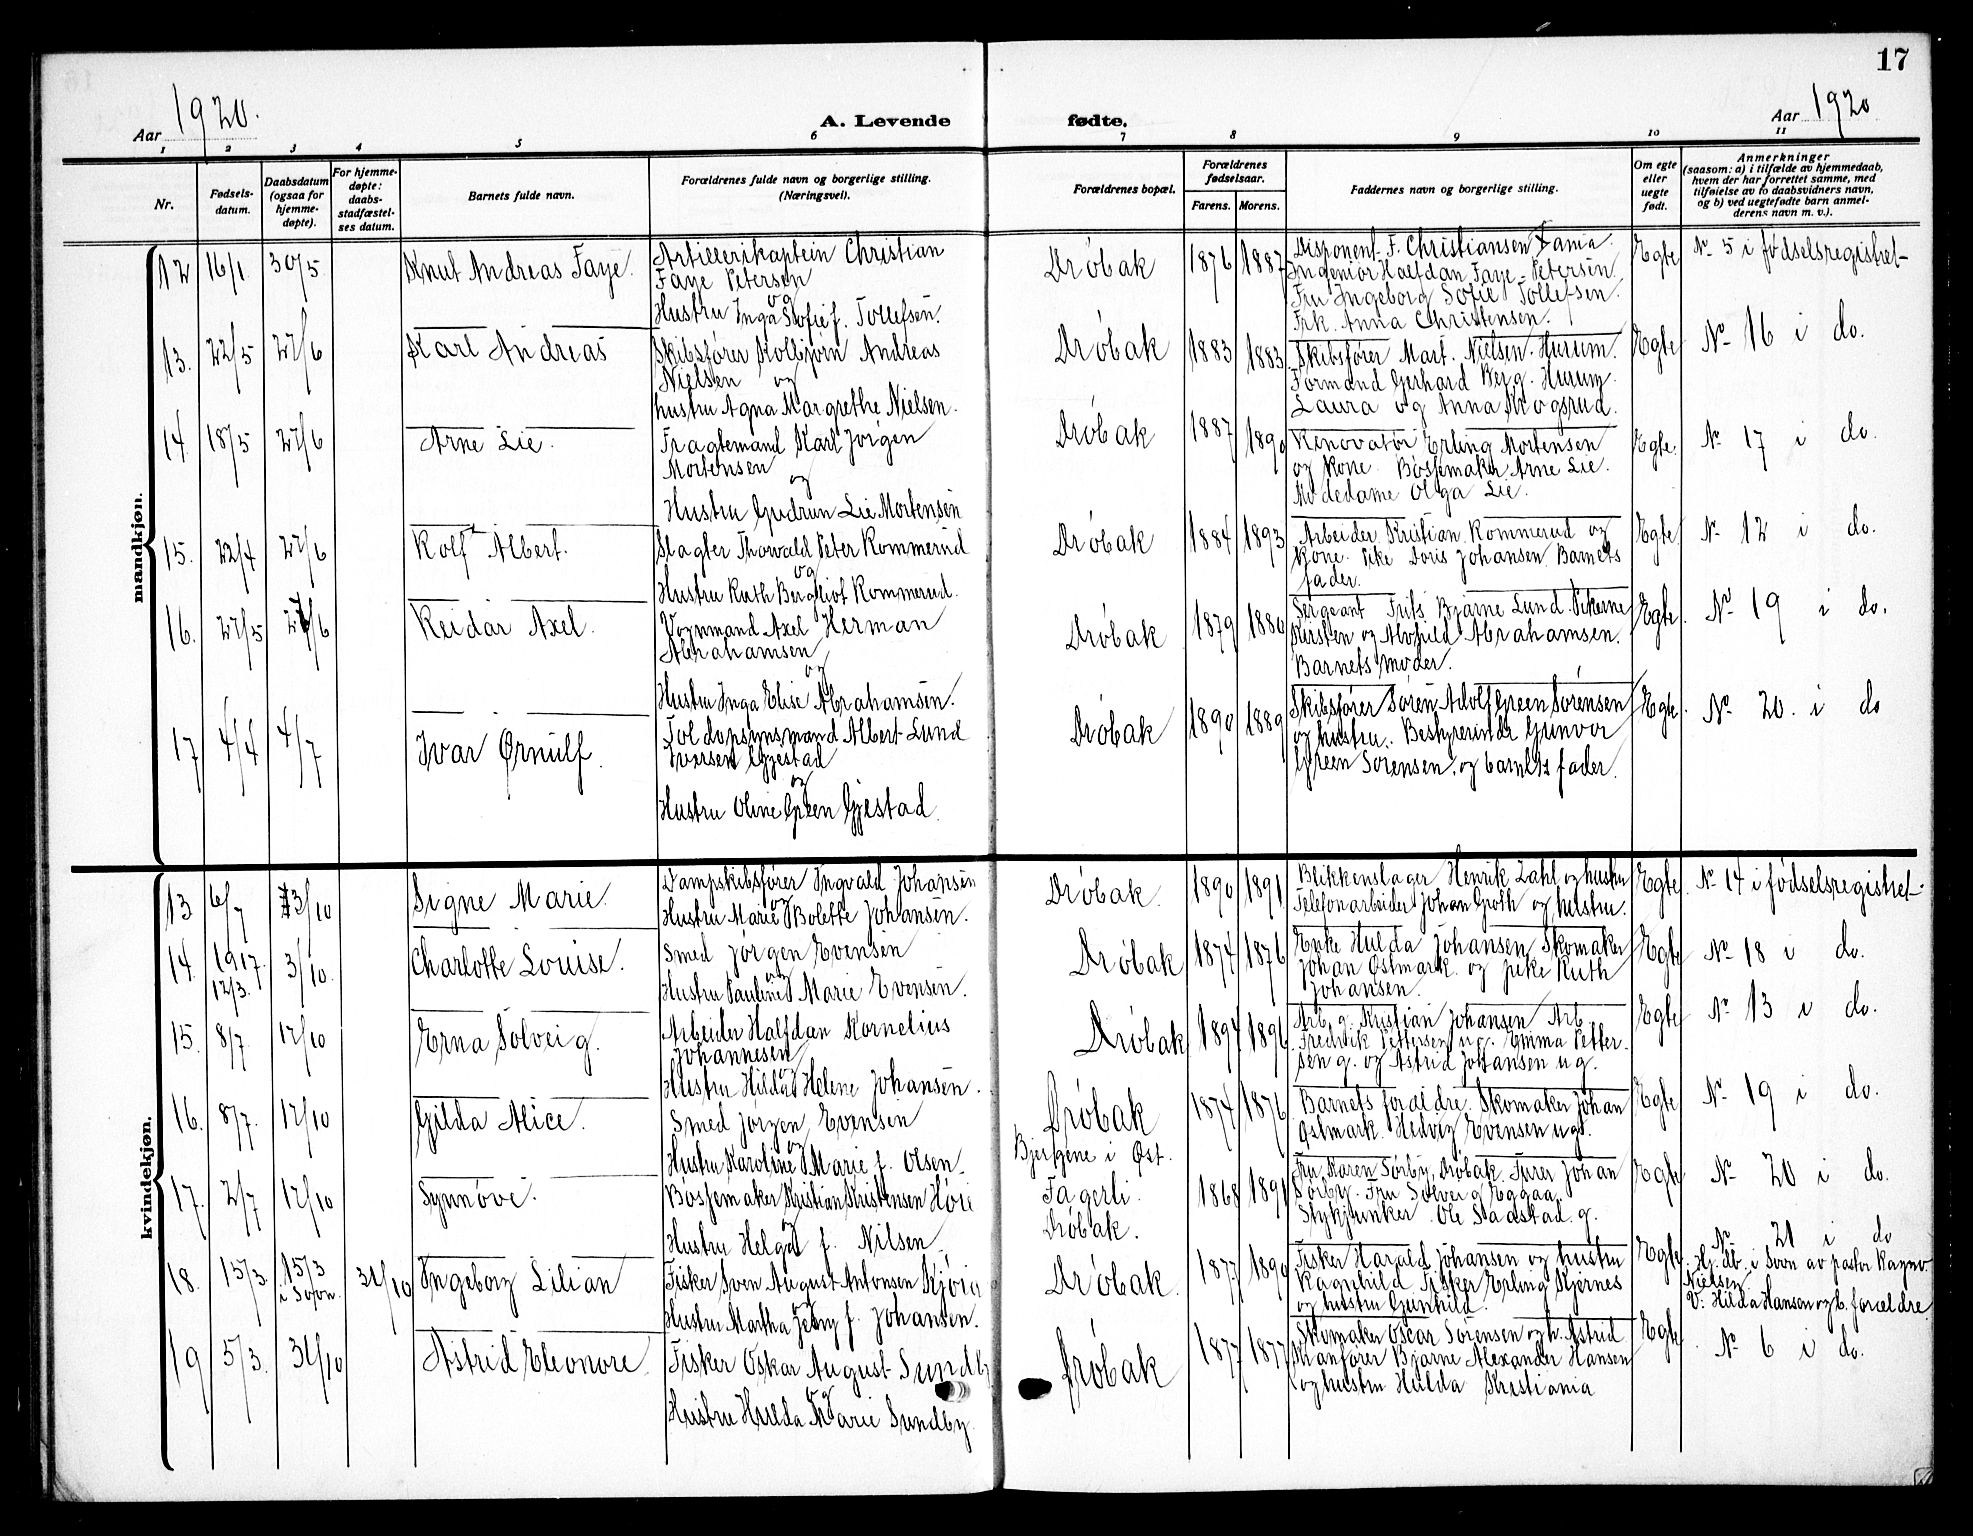 17
Aar 1920.
A. Levende fødte.
Aar 1920
1 2 3 4 5 6 7 8 9 10 11
Nr.
Fødsels-
datum.
Daabsdatum
(ogsaa for
hjemme-
døpte).
For hjemme-
døpte:
daabs-
stadfæstel-
ses datum.
Barnets fulde navn.
Forældrenes fulde navn og borgerlige stilling.
(Næringsvei).
Forældrenes bopæl.
Forældrenes
fødselsaar.
Farens. Morens.
Faddernes navn og borgerlige stilling.
Om egte
eller
uegte
født.
Anmerkninger
(saasom: a) i tilfælde av hjemmedaab,
hvem der har forrettet samme, med
tilføielse av to daabsvidners navn,
og b) ved uegtefødte barn anmel-
derens navn m. v.).
mandkjøn.
12 16/1 30/5 Knut Andreas Faye.
Artillerikaptein Christian
Faye Petersen
og
Hustru Inga Sofie f. Tollefsen.
Drøbak 1876 1887
Disponent F. Christiansen
Ingeniør Halfdan Faye-Petersen.
Fru Ingeborg Sofie Tollefsen.
Frk. Anna Christensen.
Egte No 5 i fødselsregistret
13. 22/5 27/6 Karl Andreas
Skibsfører Kolbjørn Andreas
Nielsen og
hustru Agna Margrethe Nielsen.
Drøbak 1883 1883
Skibsfører Mart. Nielsen. Hurum.
Formand Gerhard Berg. Hurum.
Laura og Anna Krogsrud.
Egte No 16 i do.
14. 18/5 27/6 Arne Lie.
Fragtemand Karl Jørgen
Mortensen
og
Hustru Gudrun Lie Mortensen
Drøbak 1887 1890
Renovatør Erling Mortensen
og kone. Bøssemaker Arne Lie.
Modedame Olga Lie.
Egte. No 17 i do.
15. 22/4 27/6 Rolf Albert.
Slagter Thorvald Peter Kommerud
og
Hustru Ruth Bergliot Kommerud.
Drøbak 1884 1893
Arbeider Kristian Kommerud og
kone. Pike Doris Johansen Barnets
fader.
Egte. No 12 i do.
16. 27/5 27/6 Reidar Axel.
Vognmand Axel Herman
Abrahamsen
og
Hustru Inga Elise Abrahamsen.
Drøbak 1879 1880
Sergeant Frits Bjarne Lund. Pikerne
Kirsten og Alvhild Abrahamsen.
Barnets moder.
Egte. No 19 i do.
17 4/4 4/7 Ivar Ørnulf.
Toldopsynsmand Albert Lund
Iversen Gjestad
og
Hustru Oline Green Gjestad.
Drøbak 1890 1889
Skibsfører Søren Adolf Green Sørensen
og hustru. Bestyrerinde Gunvor
Green Sørensen. og barnets fader.
Egte. No 20. i do
kvindekjøn.
13 6/7 3/10 Signe Marie.
Dampskibsfører Ingvald Johansen
og
Hustru Marie Bolette Johansen.
Drøbak. 1890 1891
Blikkenslager Henrik Dahl og hustru
Telefonarbeider Johan Groth og hustru.
Egte. No 14 i fødselsregistret
14. 1917. 12/3. 3/10. Charlotte Louise.
Smed Jørgen Evensen
og
Hustru Pauline Marie Evensen.
Drøbak 1874 1876
Enke Hulda Johansen Skomaker
Johan Østmark og pike Ruth
Johansen.
Egte No 18 i do.
15. 8/7 17/10 Erna Solveig.
Arbeider Halfdan Kornelius
Johannesen
og
Hustru Hilda Helene Johansen.
Drøbak 1894 1896
Arb. g. Kristian Johansen Arb
Fredrik Pettersen ug. Emma Petter-
sen g. og Astrid Johansen ug.
Egte No 13 i do.
16. 8/7. 17/10 Gilda Alice.
Smed Jørgen Evensen
og
Hustru Karoline Marie f. Olsen.
Drøbak 1874 1876
Barnets forældre. Skomaker Johan
Østmark. Hedvig Evensen ug.
Egte No 19 i do.
17. 2/7 17/10 Synnøve.
Bøssemaker Kristian Kristensen Høie
og
Hustru Helga f. Nilsen
Bjergene i Øst.
Fagerli.
Drøbak. 1868 1891
Fru Karen Sørby, Drøbak. Furer Johan
Sørby. Fru Solveig Eggaa.
Stykjunker Ole Saastad. g.
Egte No 20 i do.
18. 15/3 15/3 i Sovn. 31/10 Ingeborg Lilian
Fisker Sven August Antonsen
og
Hustru Martha Jenny f. Johansen.
Drøbak. 1877 1890
Fisker Harald Johansen og hustru
Ragnhild. Fisker Erling Kjernes
og hustru Gunhild.
Egte. No 21 i do
Hj. db. i Sovn av pastor Ragnv.
Nielsen
V: Hilda Hansen og b. forældre
19 5/3. 31/10 Astrid Eleonore.
Fisker Oskar August Sundby
og
Hustru Hulda Marie Sundby.
Drøbak 1877 1877
Skomaker Oscar Sørensen og h. Astrid
Kranfører Bjarne Alexander Hansen
og hustru Hulda Kristiania
Egte No 6 i do.